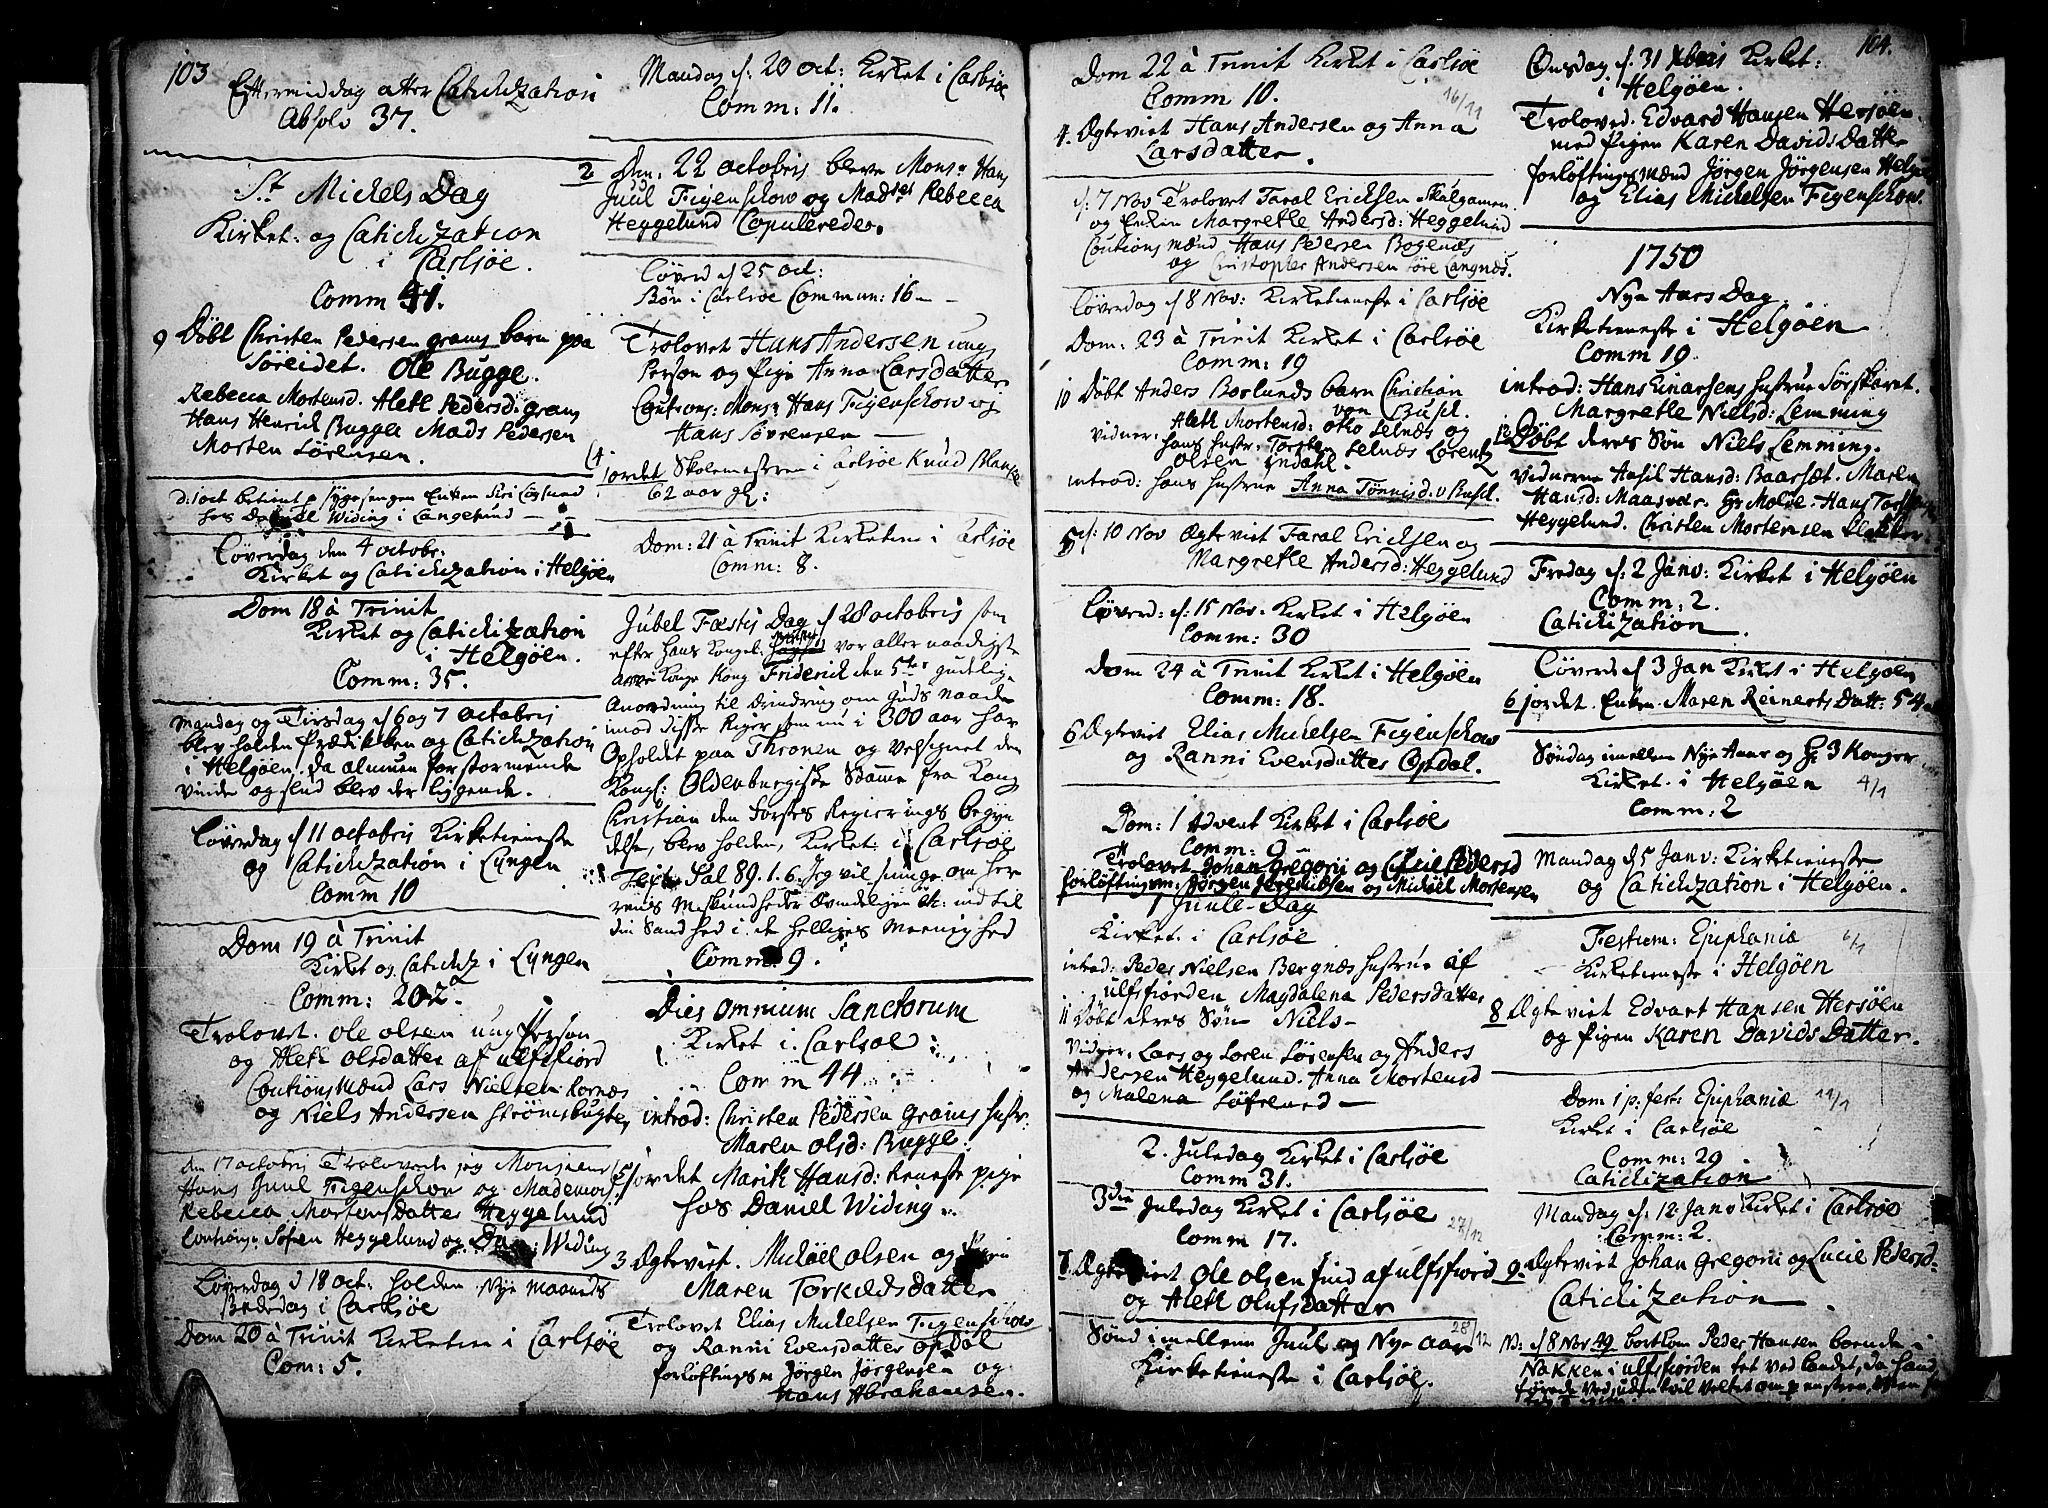 103
Eftermiddag atter Catichization
Absolv 37.
St Michels Dag
Kirket: og Catichization
i Carlsøe.
Comm 41.
9 Døbt Christen Pedersen grams barn paa
Søreidet. Ole Bugge.
Rebecca Mortensd. Aleth Pedersd: gram
Hans Henrich Bugge Mads Pedersen
Morten Sørensen.
d: 1 oct betient p sygesengen Enken Siri
hos Daniel Widing i Langesund
Løverdag den 4 octobr:
Kirket og Catichization i Helgøen
Dom 18 à Trinit
Kirket og Catichization
i Helgøen.
Comm: 35.
Mandag og Tirsdag d 6 og 7 octobris
blev holden Prædikken og Catichization
i Helgøen. da almuen for stormende
vinde og slud blev der liggende.
Løverdag d 11 octobris Kirketieneste
og Catichization i Lyngen
Comm 10
Dom 19 à Trinit
Kirket og Catichiz i Lyngen
Comm: 202.
Trolovet. Ole Olsen ung Person
og Aleth Olsdatter af Ulfsfiord
Coutionsmænd Lars Nielsen Kornæs
og Niels Andersen Strömsbugten
Den 17 octobris Trolovede jeg Monsieur
Hans Juul Figenschow og Mademois.
Rebecca MortensDatter Heggelund
Coutions. Søfren Heggelund og Dan: Widing
Løverdag d 18 oct: holden Nye Maaneds
Bededag i Carlsøe
Dom 20 à Trinit Kirketien i Carlsøe
Com: 5.
Mandag d: 20 oct: Kirket i Carlsøe
Comm: 11.
2 Den. 22 octobris bleve Monsr Hans
Juul Figenschow og Madses Rebecca
Heggelund Copulerede.
Løverd d 25 oct:
Bøn i Carlsøe Commun: 16
Trolovet Hans Andersen ung
Person og Pige Anna Larsdatter
Coutions: Monsr Hans Figenschow og
Hans Sövrensen
14 jordet Skolemesteren i Carlsøe Knud
62 aar gl:
Dom: 21 à Trinit Kirketien i Carlsøe
Comm: 8.
Jubel Fæstis Dag d 28 octobris som
efter Hans Kongel: vor aller naadigste
arve Konge Kong Friderich den 5tes gudelig
Anordning til Erindring om Guds naade
imod disse Riger som nu i 300 aar har
Opholdet paa Thronen og velsignet den
Kongl: Oldenburgiske Stamme fra Kong
Christian den Førstes Regierings begyn
delse, blev holden, Kirket i Carlsøe
Text Sal 89. 1. 6. Jeg vil siunge om Her
rens Miskundheder Ævindeligen etc: ind til
din Sandhed i de helliges Menighed
Comm. 9.
Dies omnium Sanctorum
Kirket i Carlsøe
Comm 44
introd: Christen Pedersen Grams hustr:
Maren Olsd: Bugge.
15 jordet Marith Hansd: tieneste pige
hos Daniel Widing
3 Ægteviet. Michael Olsen og
Maren TorkildsDatter
Trolovet Elias Michelsen Figenschow
og Ranni Evensdatter Opdal
forløftingsm Jørgen Jørgensen og
Hans Abrahamsen.
Dom 22 à Trinit Kirket i Carlsøe
Comm 10. 16/11
4. Ægteviet Hans Andersen og Anna
Larsdatter.
d: 7 Nov Trolovet Faral Ericksen Skulgamen
og Enken Margrethe Andersd: Heggelund
Coutionsmænd Hans Pedersen Bogenæs
og Christopher Andersen Søre Langnæs.
Løverdag d 8 Nov: Kirketieneste i Carlsøe
Dom: 23 à Trinit Kirket i Carlsøe
Comm: 19
10 Døbt Anders Borlunds barn Christian
von Busl.
vidner. Aleth Mortensd: Otho Selnæs og
hans hustr. Selnæs Lorentz
Olsen Indahl.
introd: hans hustrue Anna Tønnisd. v Busl.
5 d: 10 Nov Ægteviet Faral Ericksen og
Margrethe Andersd: Heggelund
Løverd: d: 15 Nov. Kirket i Helgøen
Comm: 30
Dom 24 à Trinit Kirket i Helgøen
Comm: 18.
6 Ægteviet Elias Michelsen Figenschow
og Ranni Evensdatter Opdal.
Dom: 1 Advent Kirket i Carlsøe
Comm: 9
Trolovet Johan Gregorii og Lucie Pedersd
forløftingsm: Jørgen og Michael Mortensen
1 Juule-Dag
Kirket i Carlsøe
introd: Peder Nielsen Bergnæs hustrue af
ulfsfiorden Magdalena Pedersdatter
11 Døbt deres Søn Niels
Vidner. Lars og Soren Sørensen og Anders
Andersen Heggelund. Anna Mortensd
og Malena
2. Juledag Kirket i Carlsøe
Comm 31.
3die Juledag Kirket i Carlsøe
Comm 17. 27/12
7 Ægteviet Ole Olsen find af ulfsfiord
og Aleth Olufsdatter
Sönd imellem Juul og Nye aar 28/12
Kirketieneste i Carlsøe.
104.
Onsdag d: 31 Xbris Kirket:
i Helgøen.
Troloved. Edvard Hansen Hersøen.
med Pigen Karen DavidsDatter
forløftingsmænd Jørgen Jørgensen Helgøe
og Elias Michelsen Figenschow.
1750
Nye Aars Dag
Kirketieneste i Helgöen
Comm 19.
introd: Hans Einarsens hustrue Sørskaret.
Margrethe Nielsd: Lemming
12 Døbt deres Søn Niels Lemming.
Vidnerne Aasil Hansd: Baarsæt. Maren
Hansd: Maasvær. Hr Molde. Hans
Heggelund. Christen Mortensen
Fredag d: 2 Janv: Kirket i Helgøen
Comm: 2.
Catichization.
Løverd d 3 Jan Kirket i Helgøen
6 jordet. Enken Maren Reinerts Datt: 54
Søndag imellem Nye Aar og H: 3 Konger
Kirket i Helgøen 4/1
Comm: 2
Mandag d 5 Janv: Kirketieneste
og Catichization i Helgøen.
Festum: Epiphaniæ 6/1
Kirketieneste i Helgöen
8 Ægteviet Edvart Hansen Hersöen
og Pigen Karen DavidsDatter.
Dom 1 p: fest: Epiphaniæ 11/1
Kirket i Carlsøe
Comm: 29
Catichization
Mandag d: 12 Janv Kirket i Carlsøe
Comm: 2.
9. Ægteviet Johan Gregorii og Lucie Pedersd
Catichization
N: d 8 Nov 49 bortkom Peder Hansen boende
Nakken i ulfsfiorden tet ved landet, da hand
førede ved, uden hvil veltet om